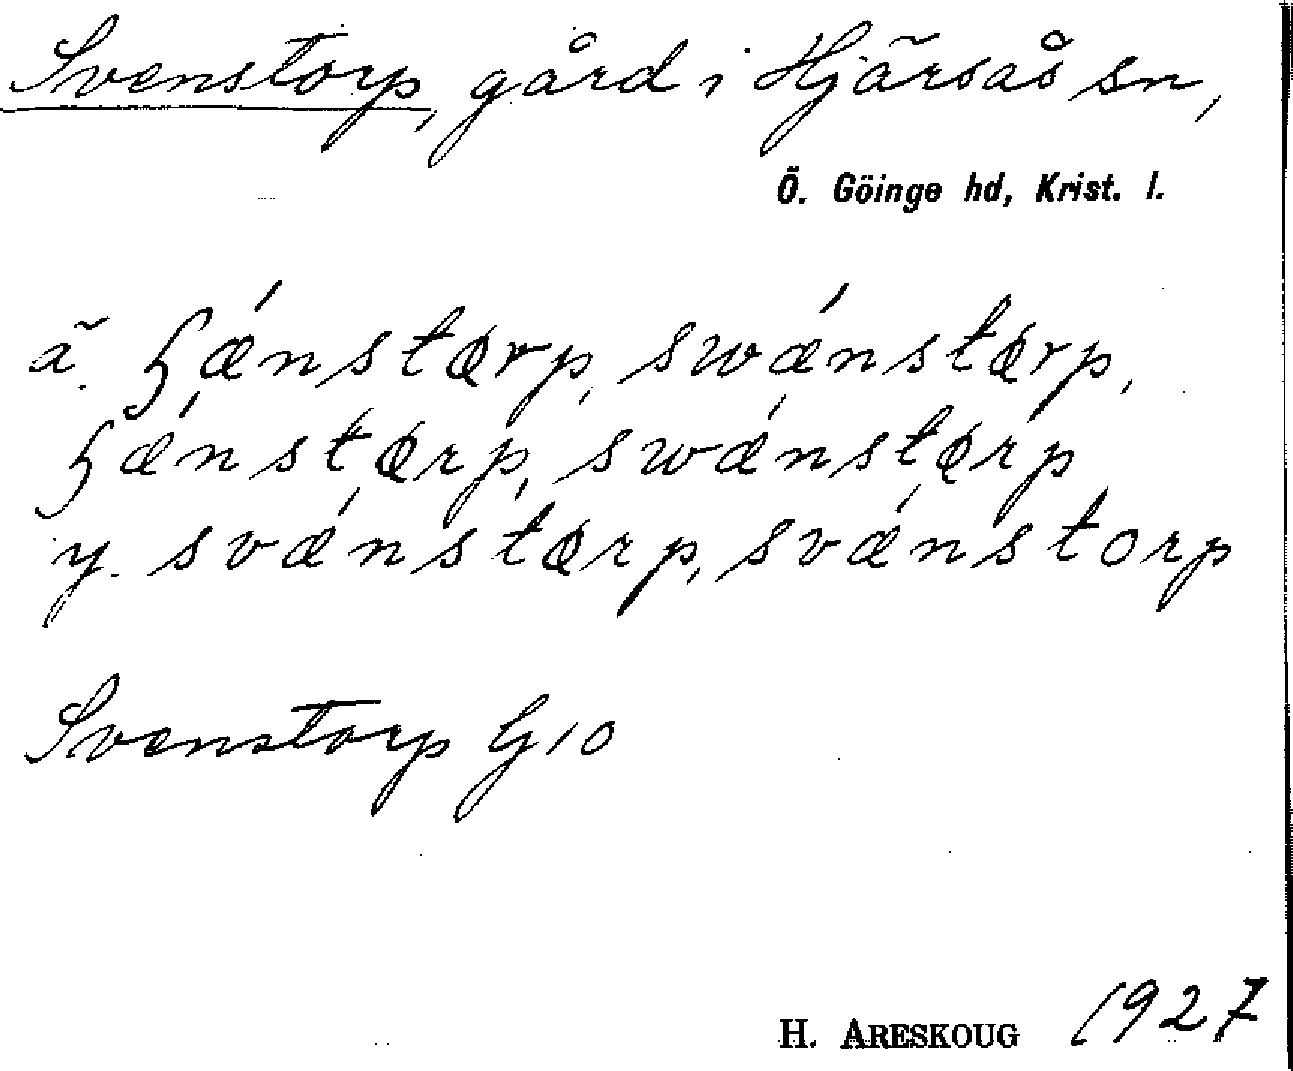 Svenstorp, gård i Hjärsås sn,
Ö. Göinge hd, Krist. l.
ä. ɧǽnstɐrp, swǽnstɐrp,
ɧǽnstɐrp, swǽnstɐrp
y. svǽnstɐrp, svǽnstorp
Svenstorp G10
H. ARESKOUG 1927